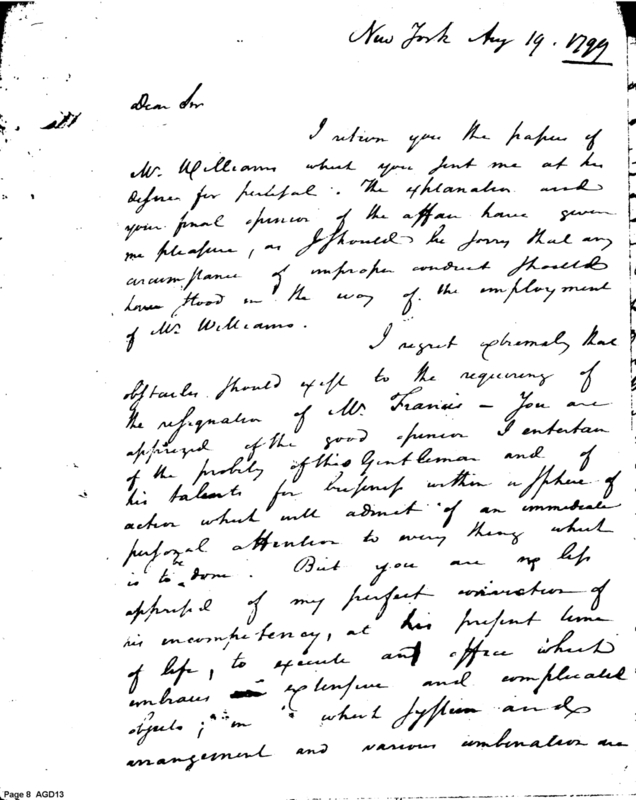 New York Aug 19. 1799
Dear Sir
I return you the papers of
Mr. Williams which you sent me at his
desire for perusal. The explanation and
your final opinion of the affair have given
me pleasure, as I should be sorry that any
circumstance of improper conduct should
have stood in the way of the employment
of Mr. Williams.
I regret extremely that
obstacles should exist to the requiring of
the resignation of Mr. Francis — You are
apprized of the good opinion I entertain
of the probity of this Gentleman and of
his talents for business within a sphere of
action which will admit of an immediate
personal attention to every thing which
is to be done. But you are no less
apprised of my perfect conviction of
his incompetency, at his present time
of life, to execute an office which
embraces extensive and complicated
objects; in which system and
arrangement and various combination are
Page 8 AGD13